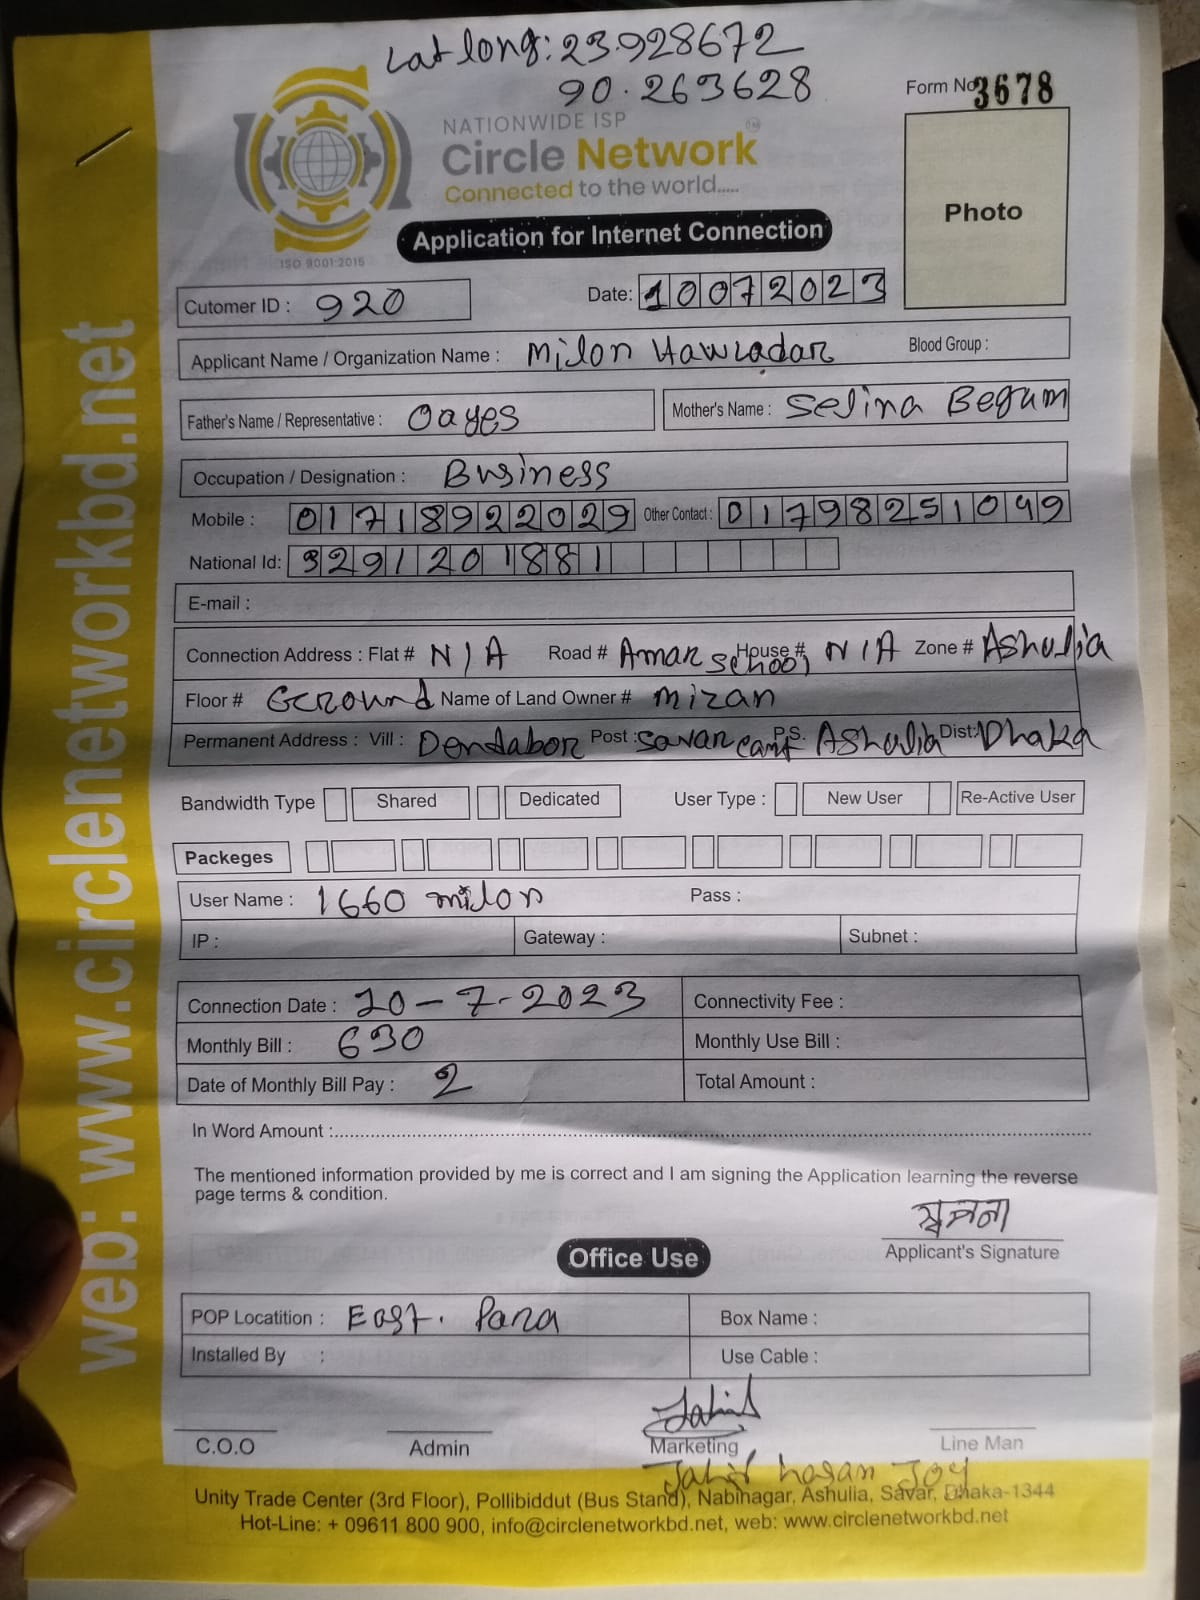 Lat long: 23.928672
90.263628
Form No 3678
NATIONWIDE ISP
Circle Network
Connected to the world.....
ISO 9001:2015
Photo
Application for Internet Connection
Cutomer ID : 920
Date: 10072023
Applicant Name / Organization Name : Milon Hawladar Blood Group :
Father's Name / Representative : Oayes Mother's Name : Selina Begum
Occupation / Designation : Business
Mobile : 01718922029 Other Contact : 01798251049
National Id: 3291201881
E-mail :
Connection Address : Flat # N/A Road # Aman School House # N/A Zone # Ashulia
Floor # Ground Name of Land Owner # mizan
Permanent Address : Vill : Dendabor Post : Savar cant P.S. Ashulia Dist: Dhaka
Bandwidth Type Shared Dedicated User Type : New User Re-Active User
Packeges
User Name : 1660 milon Pass :
IP : Gateway : Subnet :
Connection Date : 10-7-2023 Connectivity Fee :
Monthly Bill : 630 Monthly Use Bill :
Date of Monthly Bill Pay : 2 Total Amount :
In Word Amount :
The mentioned information provided by me is correct and I am signing the Application learning the reverse
page terms & condition.
Applicant's Signature
Office Use
POP Locatition : East. Para Box Name :
Installed By : Use Cable :
C.O.O Admin Marketing Line Man
hasan Joy
Unity Trade Center (3rd Floor), Pollibiddut (Bus Stand), Nabinagar, Ashulia, Savar, Dhaka-1344
Hot-Line: + 09611 800 900, info@circlenetworkbd.net, web: www.circlenetworkbd.net
web: www.circlenetworkbd.net